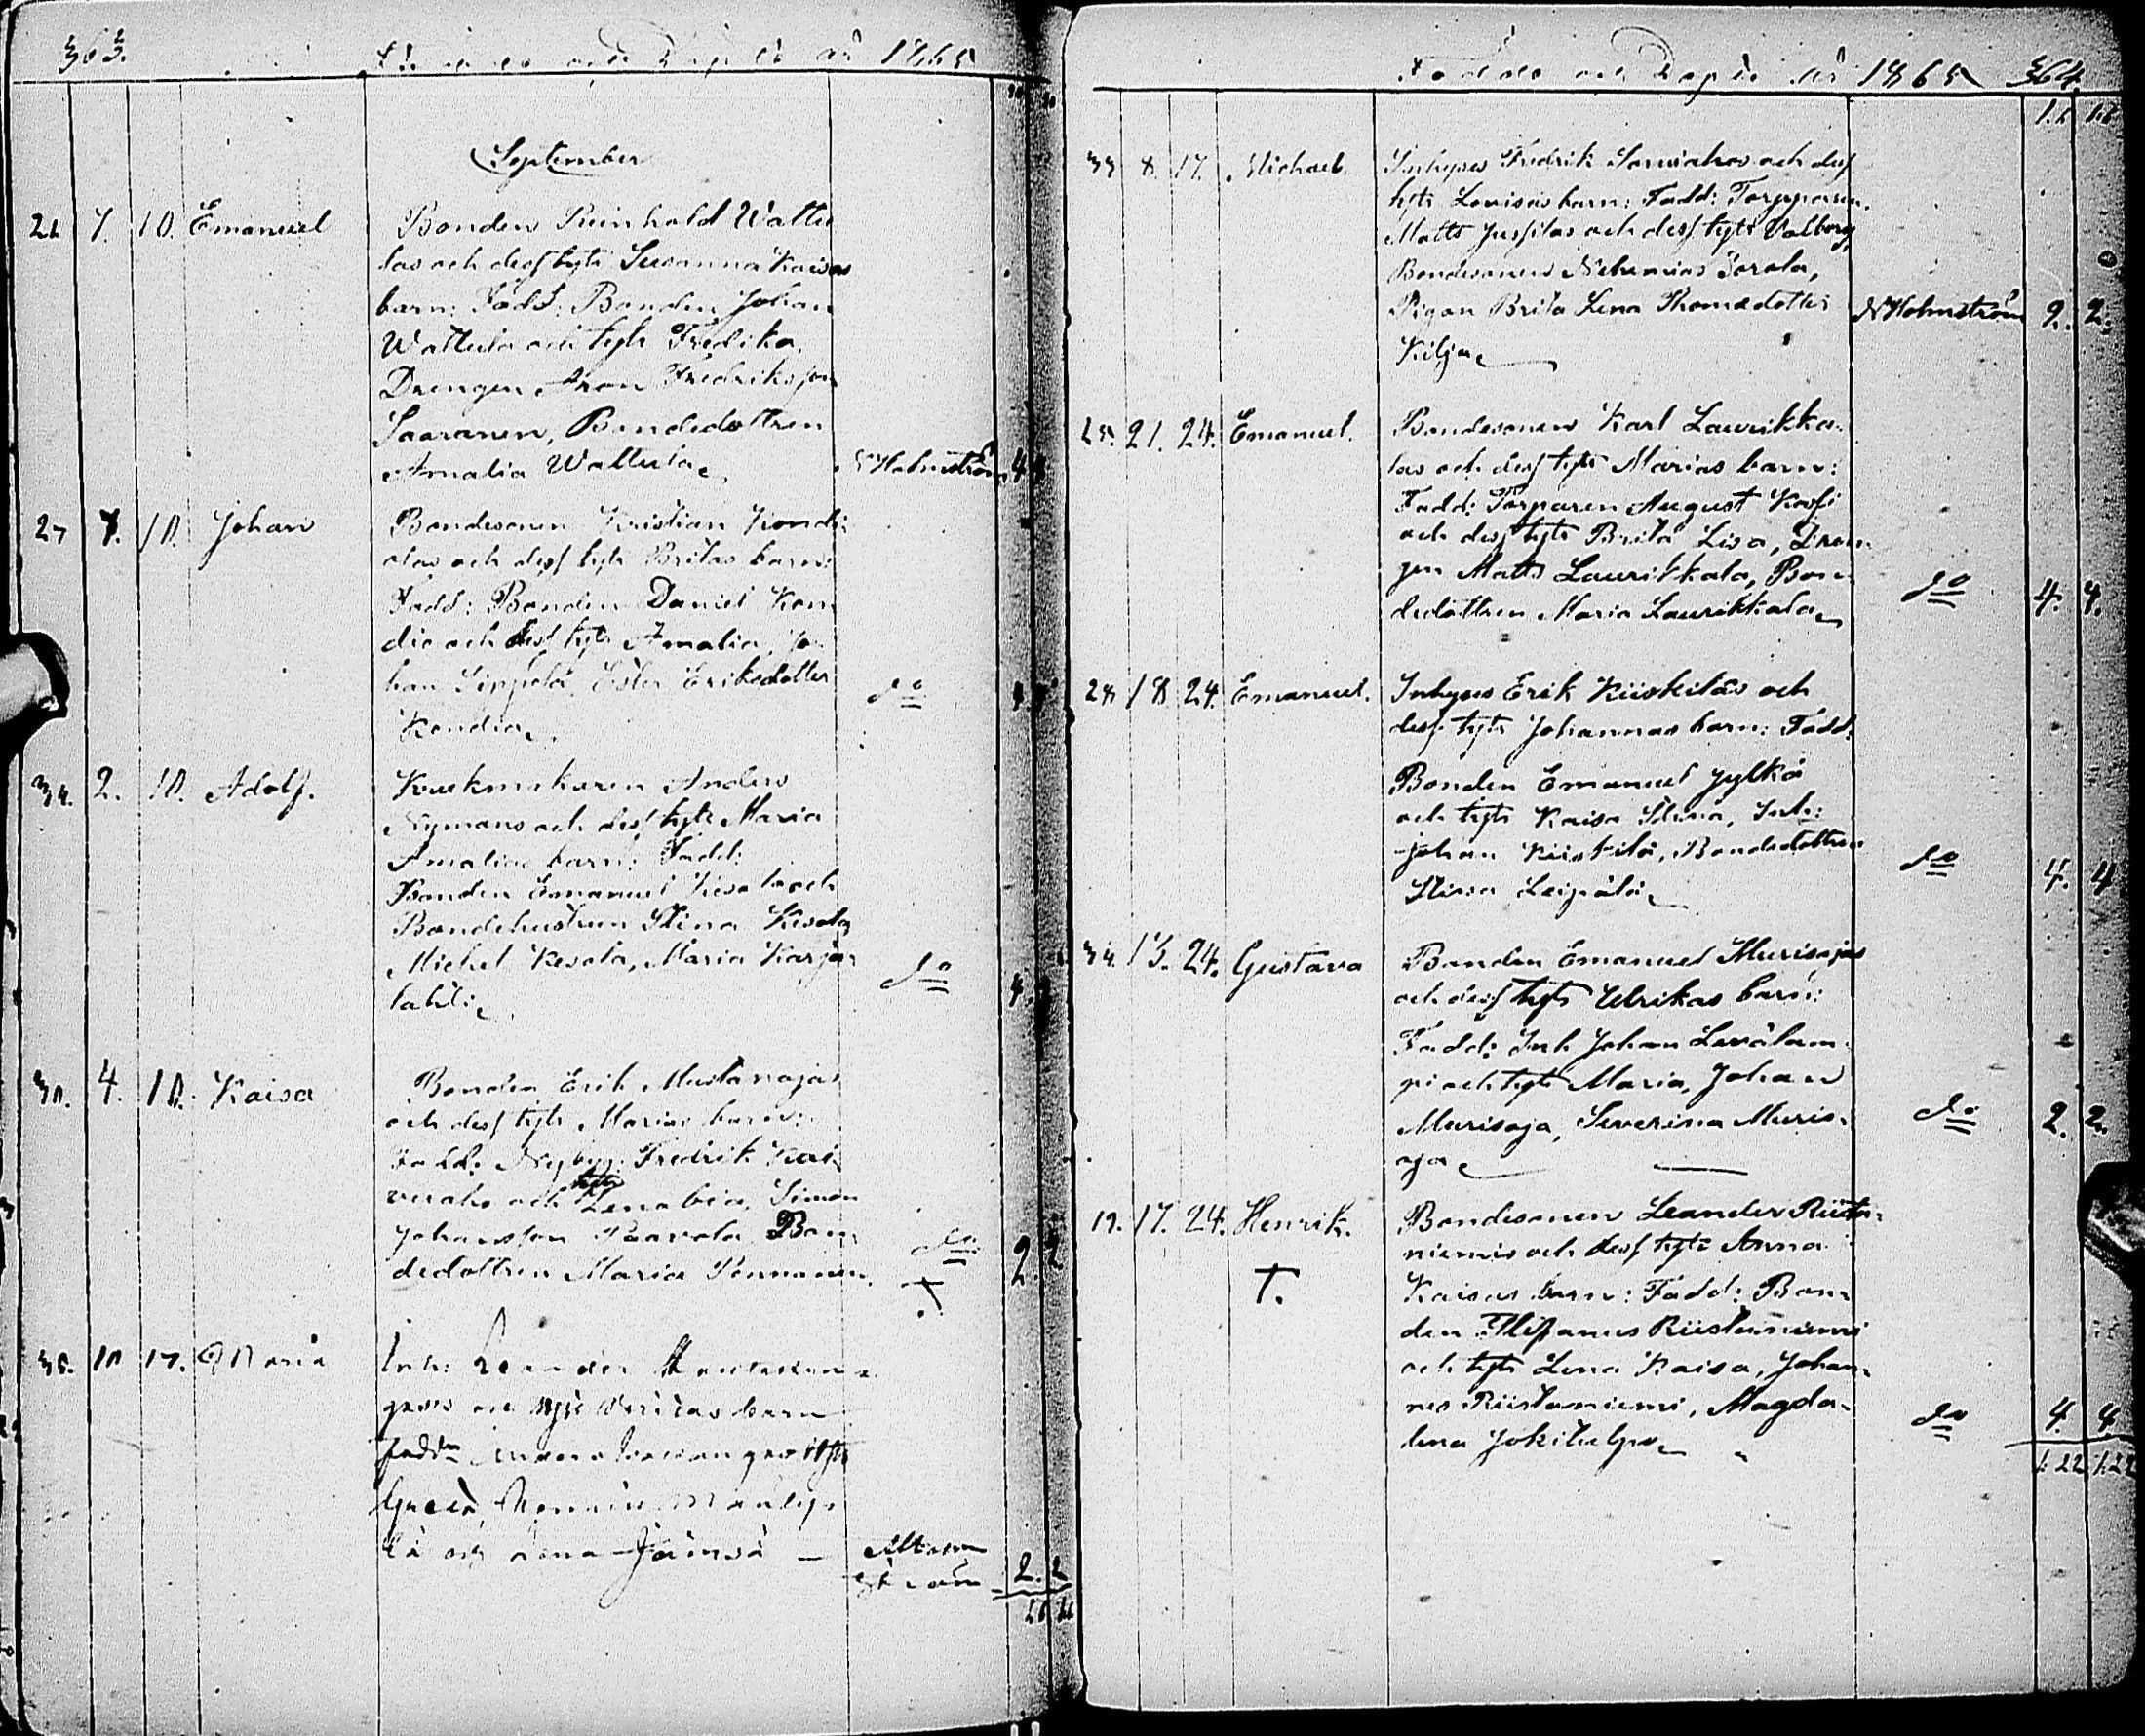 363.
Födde och Döpte år 1865
September
21 7. 10. Emanuel
Bonden Reinhold Wattu
las och dess hste Susanna Kaisas
barn: Fadd: Bonden Johan
Wattula och hste Fredika,
Drengen Aron Fredriksson
Saaranen, Bondedottren
Amalia Wattula.
N Holmström 4 4
27 7. 10. Johan
Bondesonen Kristian Kondi
olas och dess hste Britas barn:
Fadd: Bonden Daniel Kon
dio och dess hste Amalia, Jo
han Sippola, Ester Eriksdotter
Kondia.
do
34. 2. 10. Adolf.
Krukmakaren Anders
Nymans och dess hste Maria
Amalias barn: Fadd:
Bonden Emanuel Kesola och
Bondehustrun Stina Kesola
Michel Kesola, Maria Karja
lahti.
do 4.
30. 4. 10. Kaisa
Bonden Erik Mustanojas
och dess hste Marias barn:
Fadd: Nybygg: Fredrik Kai
veraho och hste Lena Caisa, Simon
Johansson Paavola, Bon
dedottren Maria Pennanen.
do 2. 2
†
35. 10 17. Maria
Inh: Leander
gas och hste Britas barn
Faddr
Greta,
lä och Anna Jämsä —
Alb Holm
ström 2. 2
16 16
Födde och Döpte år 1865 364.
1.6 1.6
33 8. 17. Michael
Inhyses Fredrik Sarviahos och dess
hste Lovisas barn: Fadd: Torpparen
Matts Jussilas och dess hste Valborg,
Bondesonen Nehemias Jorola,
Pigan Brita Lena Thomædotter
Kilja.
N Holmström 2. 2.
25. 21. 24. Emanuel.
Bondesonen Karl Laurikka
las och dess hste Marias barn:
Fadd: Torparen August Kossi
och dess hste Brita Lisa, Dren
gen Matts Laurikkala, Bon
dedottren Maria Laurikkala.
do 4. 4.
28 18 24. Emanuel.
Inhyses Erik Kiiskiläs och
dess hste Johannas barn: Fadd:
Bonden Emanuel Jylkä
och hste Kaisa Stina, Inh:
Johan Kiiskilä, Bondedottren
Stina Leipälä.
do 4. 4
34. 13. 24. Gustava
Bonden Emanuel Murisojas
och dess hste Ulrikas barn:
Fadd: Inh Johan Levälam
pi och hste Maria, Johan
Murisoja, Severina Muris
oja.
do 2. 2.
19. 17. 24. Henrik.
†.
Bondesonen Leander Riista
niemis och dess hste Anna
Kaisas barn: Fadd: Bon
den Stefanus Riistaniemi
och hste Lena Kaisa, Johan
nes Riistaniemi, Magda
lena Jokihelpo.
do 4. 4
1.22 1.22